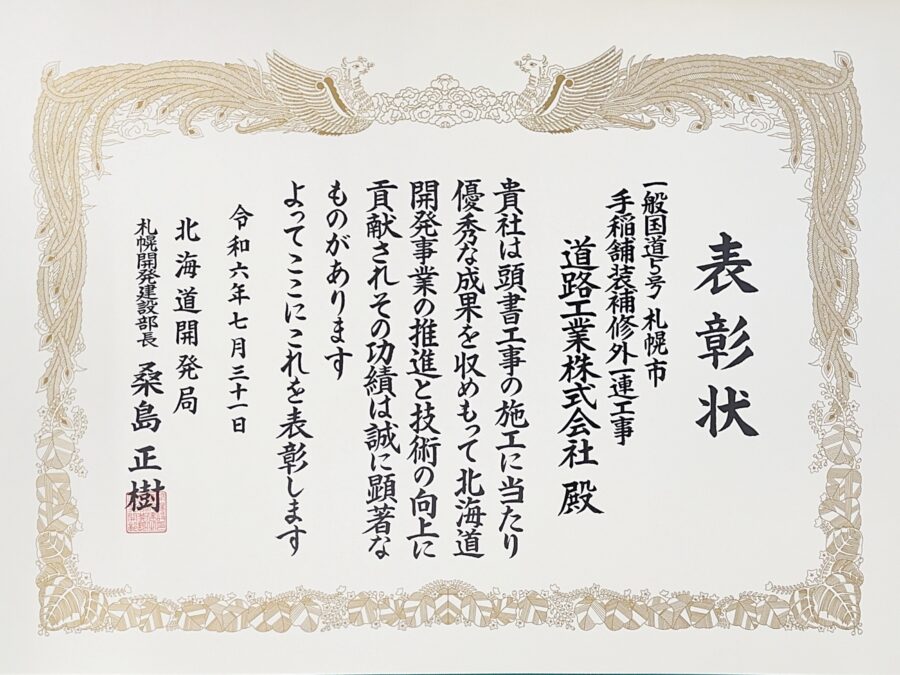 表彰状
一般国道5号 札幌市
手稲舗装補修外一連工事
道路工業株式会社 殿
貴社は頭書工事の施工に当たり
優秀な成果を収めもって北海道
開発事業の推進と技術の向上に
貢献されその功績は誠に顕著な
ものがあります
よってここにこれを表彰します
令和六年七月三十一日
北海道開発局
札幌開発建設部長 桑島正樹